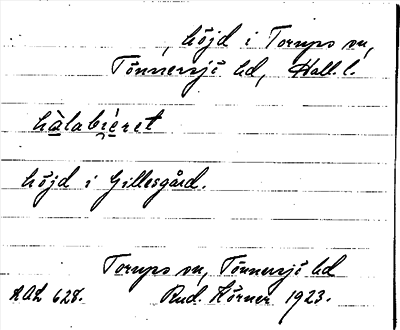 , höjd i Torups sn,
Tönnersjö hd, Hall. l.
hàlabi̯èret
höjd i Gillesgård.
Torups sn, Tönnersjö hd
AAL 628. Rud. Körner 1923.